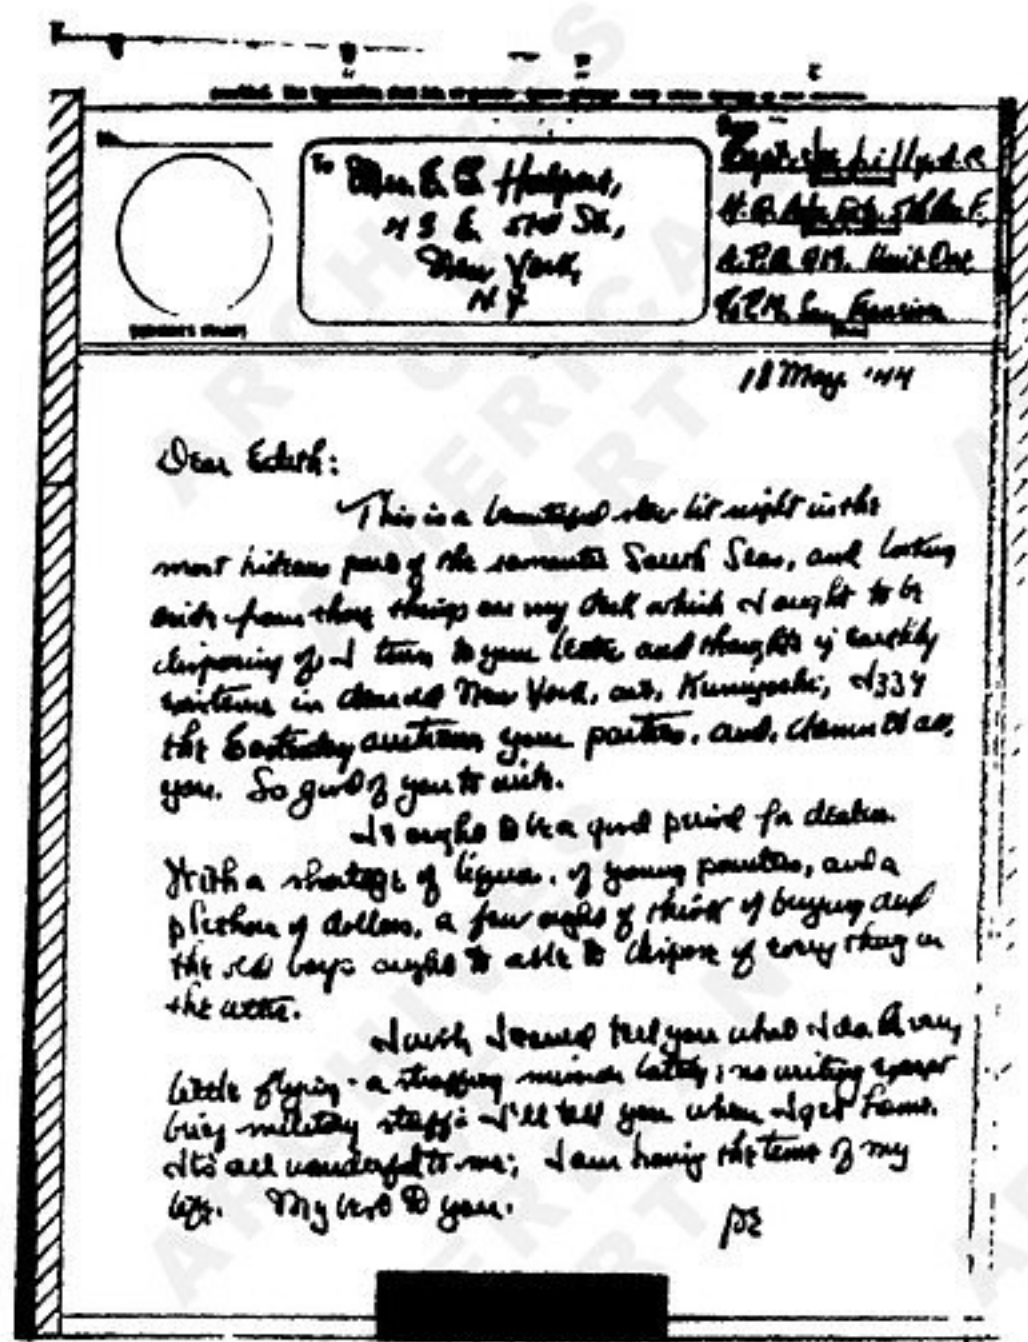 No.
To
Mrs. E. G. Halpert,
43 E. 51st St.,
New York,
N Y
Capt.
A.P.O. 919. Unit One
San Francisco
18 May. '44
Dear Edith:
This is a beautiful star lit night in the
most hideous part of the romantic South Seas, and looking
aside from those things on my desk which I ought to be
disposing of, I turn to your letter and thoughts of earthly
existence in New York, art, Kuniyoshi,
the auctions your parties, and, damn it all,
you. So good of you to write.
It ought to be a good period for dealers.
With a shortage of liquor, of young painters, and a
plethora of dollars, a few ought to think of buying and
the old boys ought to able to dispose of every thing in
the attic.
I wish I could tell you what I do. A very
little flying - a strafing mission lately; no writing except
military stuff: I'll tell you when I get home.
It's all wonderful to me; I am having the time of my
life. My best to you.
ARCHIVES
OF
AMERICAN
ART